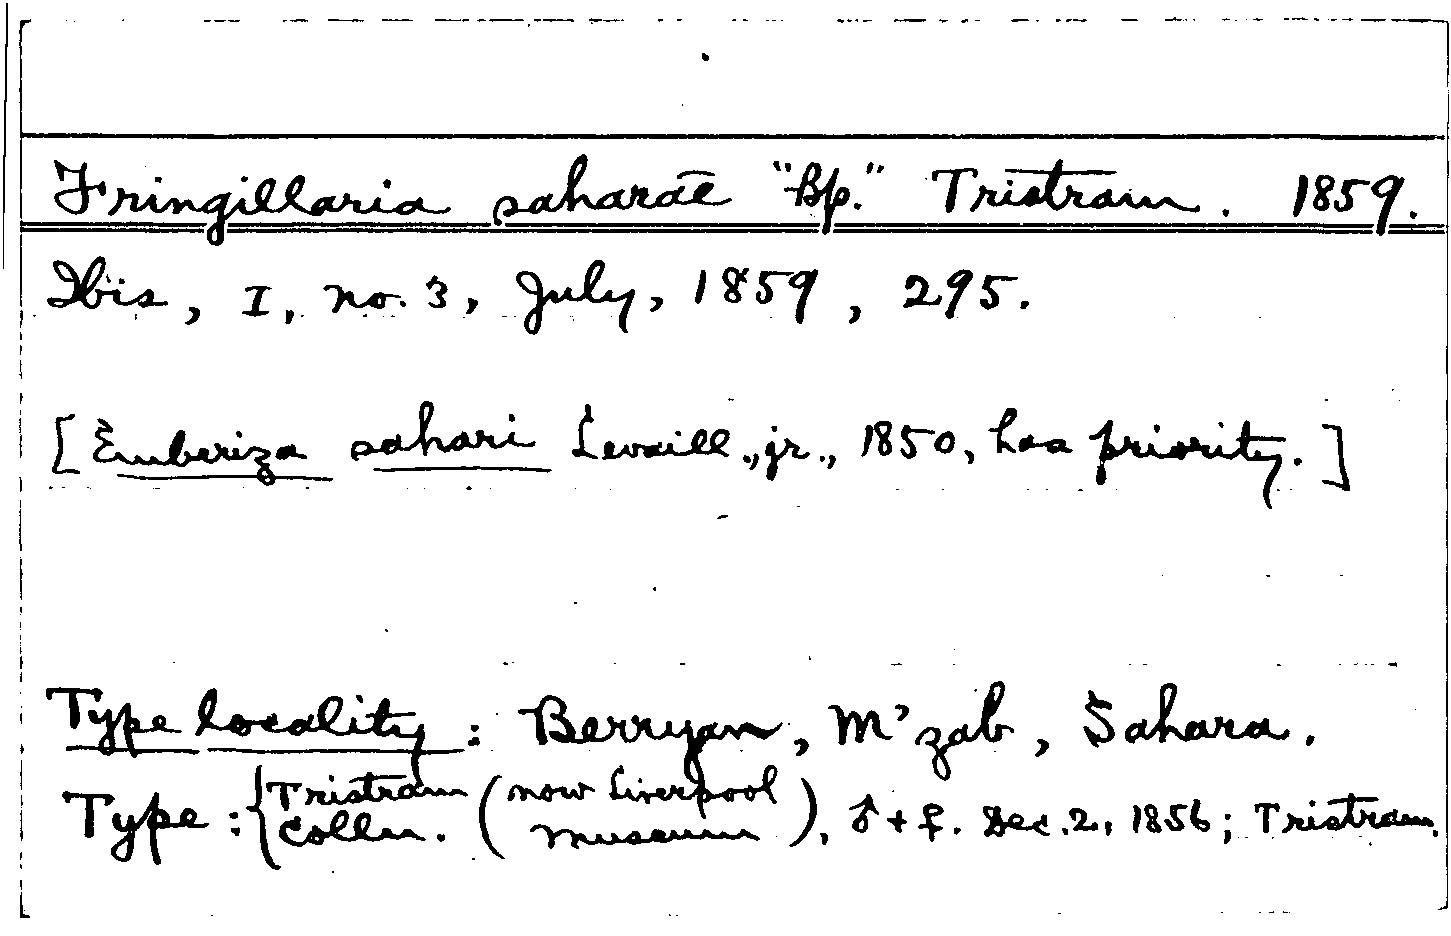 Fringillaria saharae "Bp." Tristram. 1859.
Ibis, I, no. 3, July, 1859, 295.
[Emberiza sahari Levaill., jr., 1850, has priority.]
Type locality: Berryan, M'zab, Sahara.
Type: {Tristram Colln. (now Liverpool Museum), ♂ + ♀. Dec. 2, 1856; Tristram.